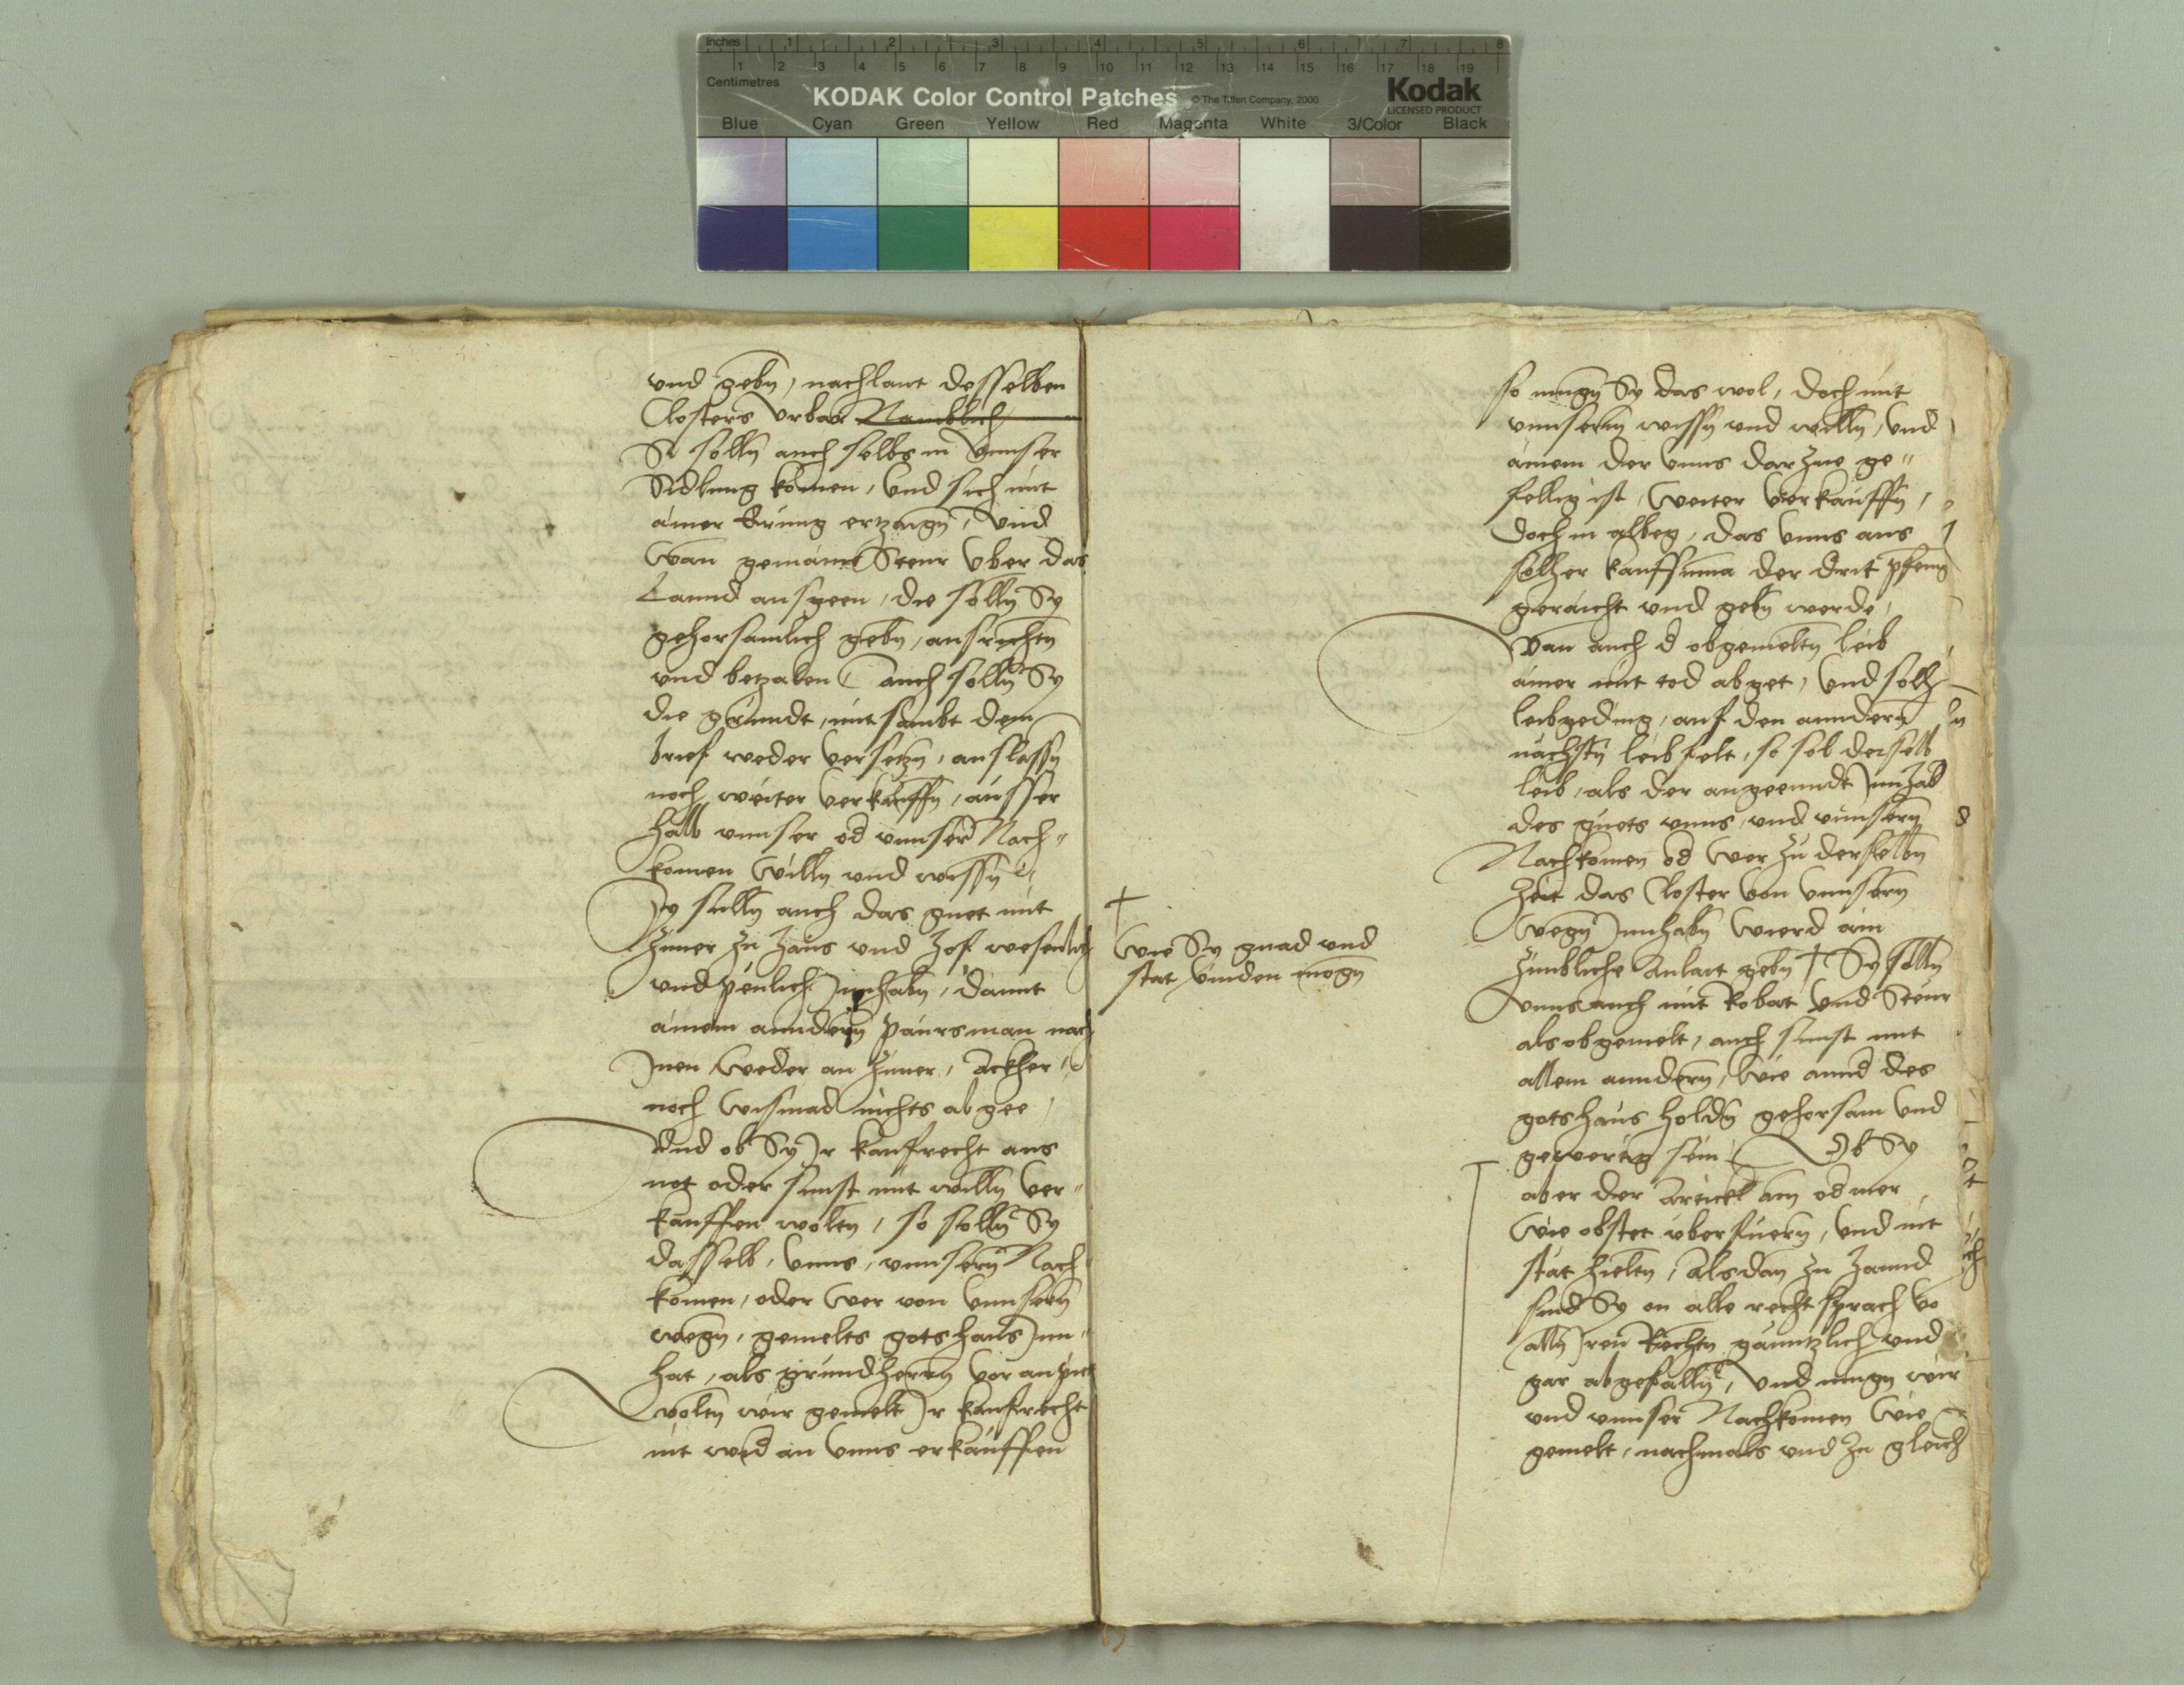 Inches 1 2 3 4 5 6 7 8
1 2 3 4 5 6 7 8 9 10 11 12 13 14 15 16 17 18 19
Centimetres
KODAK Color Control Patches © The Tiffen Company, 2000
Kodak
LICENSED PRODUCT
Blue Cyan Green Yellow Red Magenta White 3/Color Black
vnd gebn, nachlaut desselben
Closters vrbar Namblich
Si solln auch selbs in vnnser
Stifftung komen, vnd sich mit
ainer Erung ertzaign, Vnd
wan gemaine Steur vber das
Lannd ausgeen, die solln Sy
gehorsamlich gebn, ausrichtn
vnd betzalen, auch solln Sy
die grundt, mit sambt dem
brief weder versetzn, auslassn
noch weiter verkauffn, ausser
halb vnnser od vnnser Nach"
komen willn vnd wissn
Sy solln auch das guet mit
Zimer zu Haus vnd Hof wesenlich
vnd peulich Innhabn, damit
ainem anndern paursman nach
Inen weder an Zimer, Ackher,
noch wismad nichts abgee,
Vnd ob Sy Ir kaufrecht aus
not oder sunst mit willn ver"
kauffen woltn, so solln Sy
dasselb, vnns, vnnsern Nach"
komen, oder wer von vnnsern
wegn, gemelts gotshaus Inn"
hat, als grundherrn vor anpieten
woltn wir gemelt Ir kaufrecht
nit wid an vnns erkauffen
†
Wie Sy gnad vnd
stat vinden mogn
so mugn Sy das wol, doch mit
vnnserm wissn vnd welln, vnd
ainem der vnns darzue ge"
fellig ist, weiter verkauffn,
doch in albeg, das vnns aus
solher kauffsuma der drit pfening
geraicht vnd gebn werde,
Wan auch d obgemeltn leib
ainer mit tod abget, vnd solh
leibgeding, auf den anndern
nachstn leib felt, so sol derselb
leib, als der angeenndt Innhab
des guets vnns, vnd vnnsern
Nachkomen od wer zu derselbn
Zeit das Closter von vnnsern
wegn Innhabn wierd ain
Zimbliche Anlait gebn † Sy solln
vnns auch mit Robat vnd Steur
als obgemelt, auch sunst mit
allem anndern, wie annd des
gotshaus holdn gehorsam vnd
gewertig sein Ob Sy
aber der Artickl ain od mer,
wie obstet vberfuern, vnd nit
stat hieltn, Alsdan zu hannd
sind Sy on alle recht sprach vo
alln Iren Rechtn ganntzlich vnd
gar abgefalln, vnd mugn wir
vnd vnnser Nachkomen wie
gemelt, nachmals vnd zu gleich